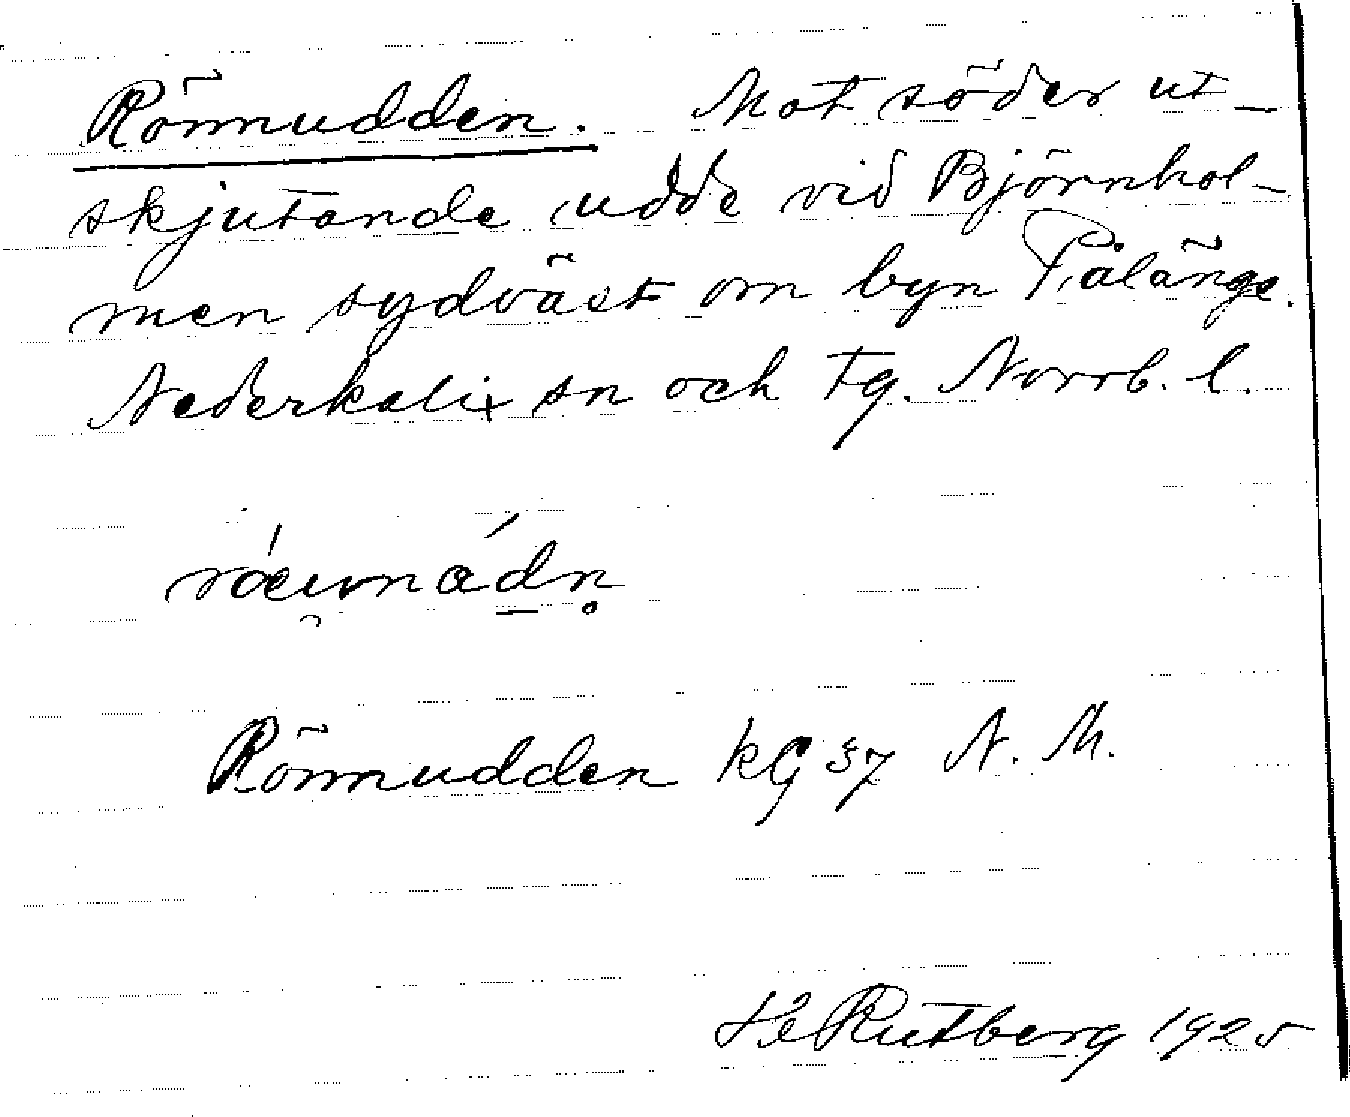 Rönnudden. Mot söder ut-
skjutande udde vid Björnhol-
men sydväst om byn Pålänge.
Nederkalix sn och tg. Norrb. l.
Rönnudden kG 37 N. M.
H Rutberg 1925